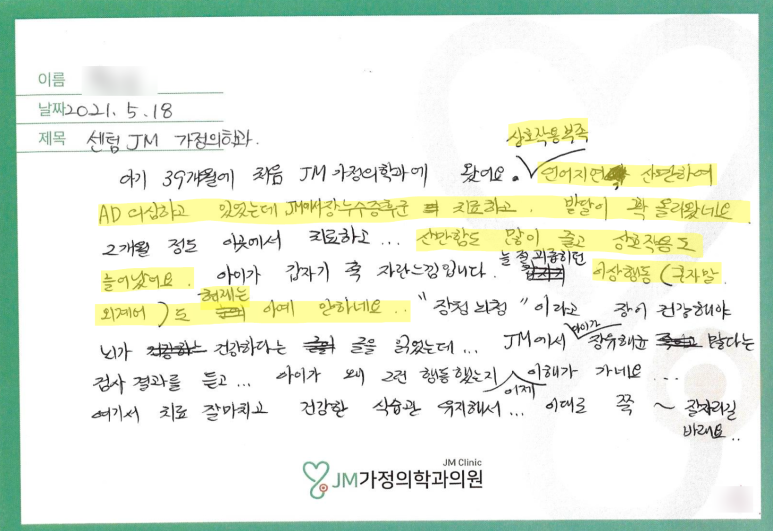 이름
날짜 2021. 5. 18
제목 센텀 JM 가정의학과.
상호작용부족
아기 39개월에 처음 JM가정의학과에 왔어요. 언어지연 산만하여
AD 의심하고 있었는데 JM에서 장누수증후군 치료하고. 발달이 확 올라왔네요
2개월 정도 이곳에서 치료하고... 산만함도 많이 줄고 상호작용도
늘어났어요. 아이가 갑자기 훅 자란느낌입니다. 늘 절 괴롭히던 이상행동 (혼자말.
외계어) 도 현재는 아예 안하네요.. "장청뇌청" 이라고 장이 건강해야
뇌가 건강하다는 글을 읽었는데... JM에서 아이가 장유해균 많다는
검사 결과를 듣고... 아이가 왜 그런 행동했는지 이제 이해가 가네요...
여기서 치료 잘마치고 건강한 식습관 유지해서... 이대로 쭉 ~ 잘자라길
바래요..
JM Clinic
JM가정의학과의원